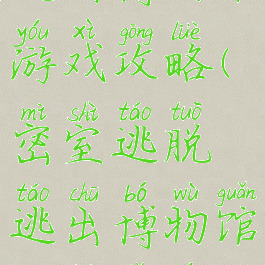 yóu xì gōng lüè
游戏攻略(
mì shì táo tuō
密室逃脱
táo chū bó wù guǎn
逃出博物馆